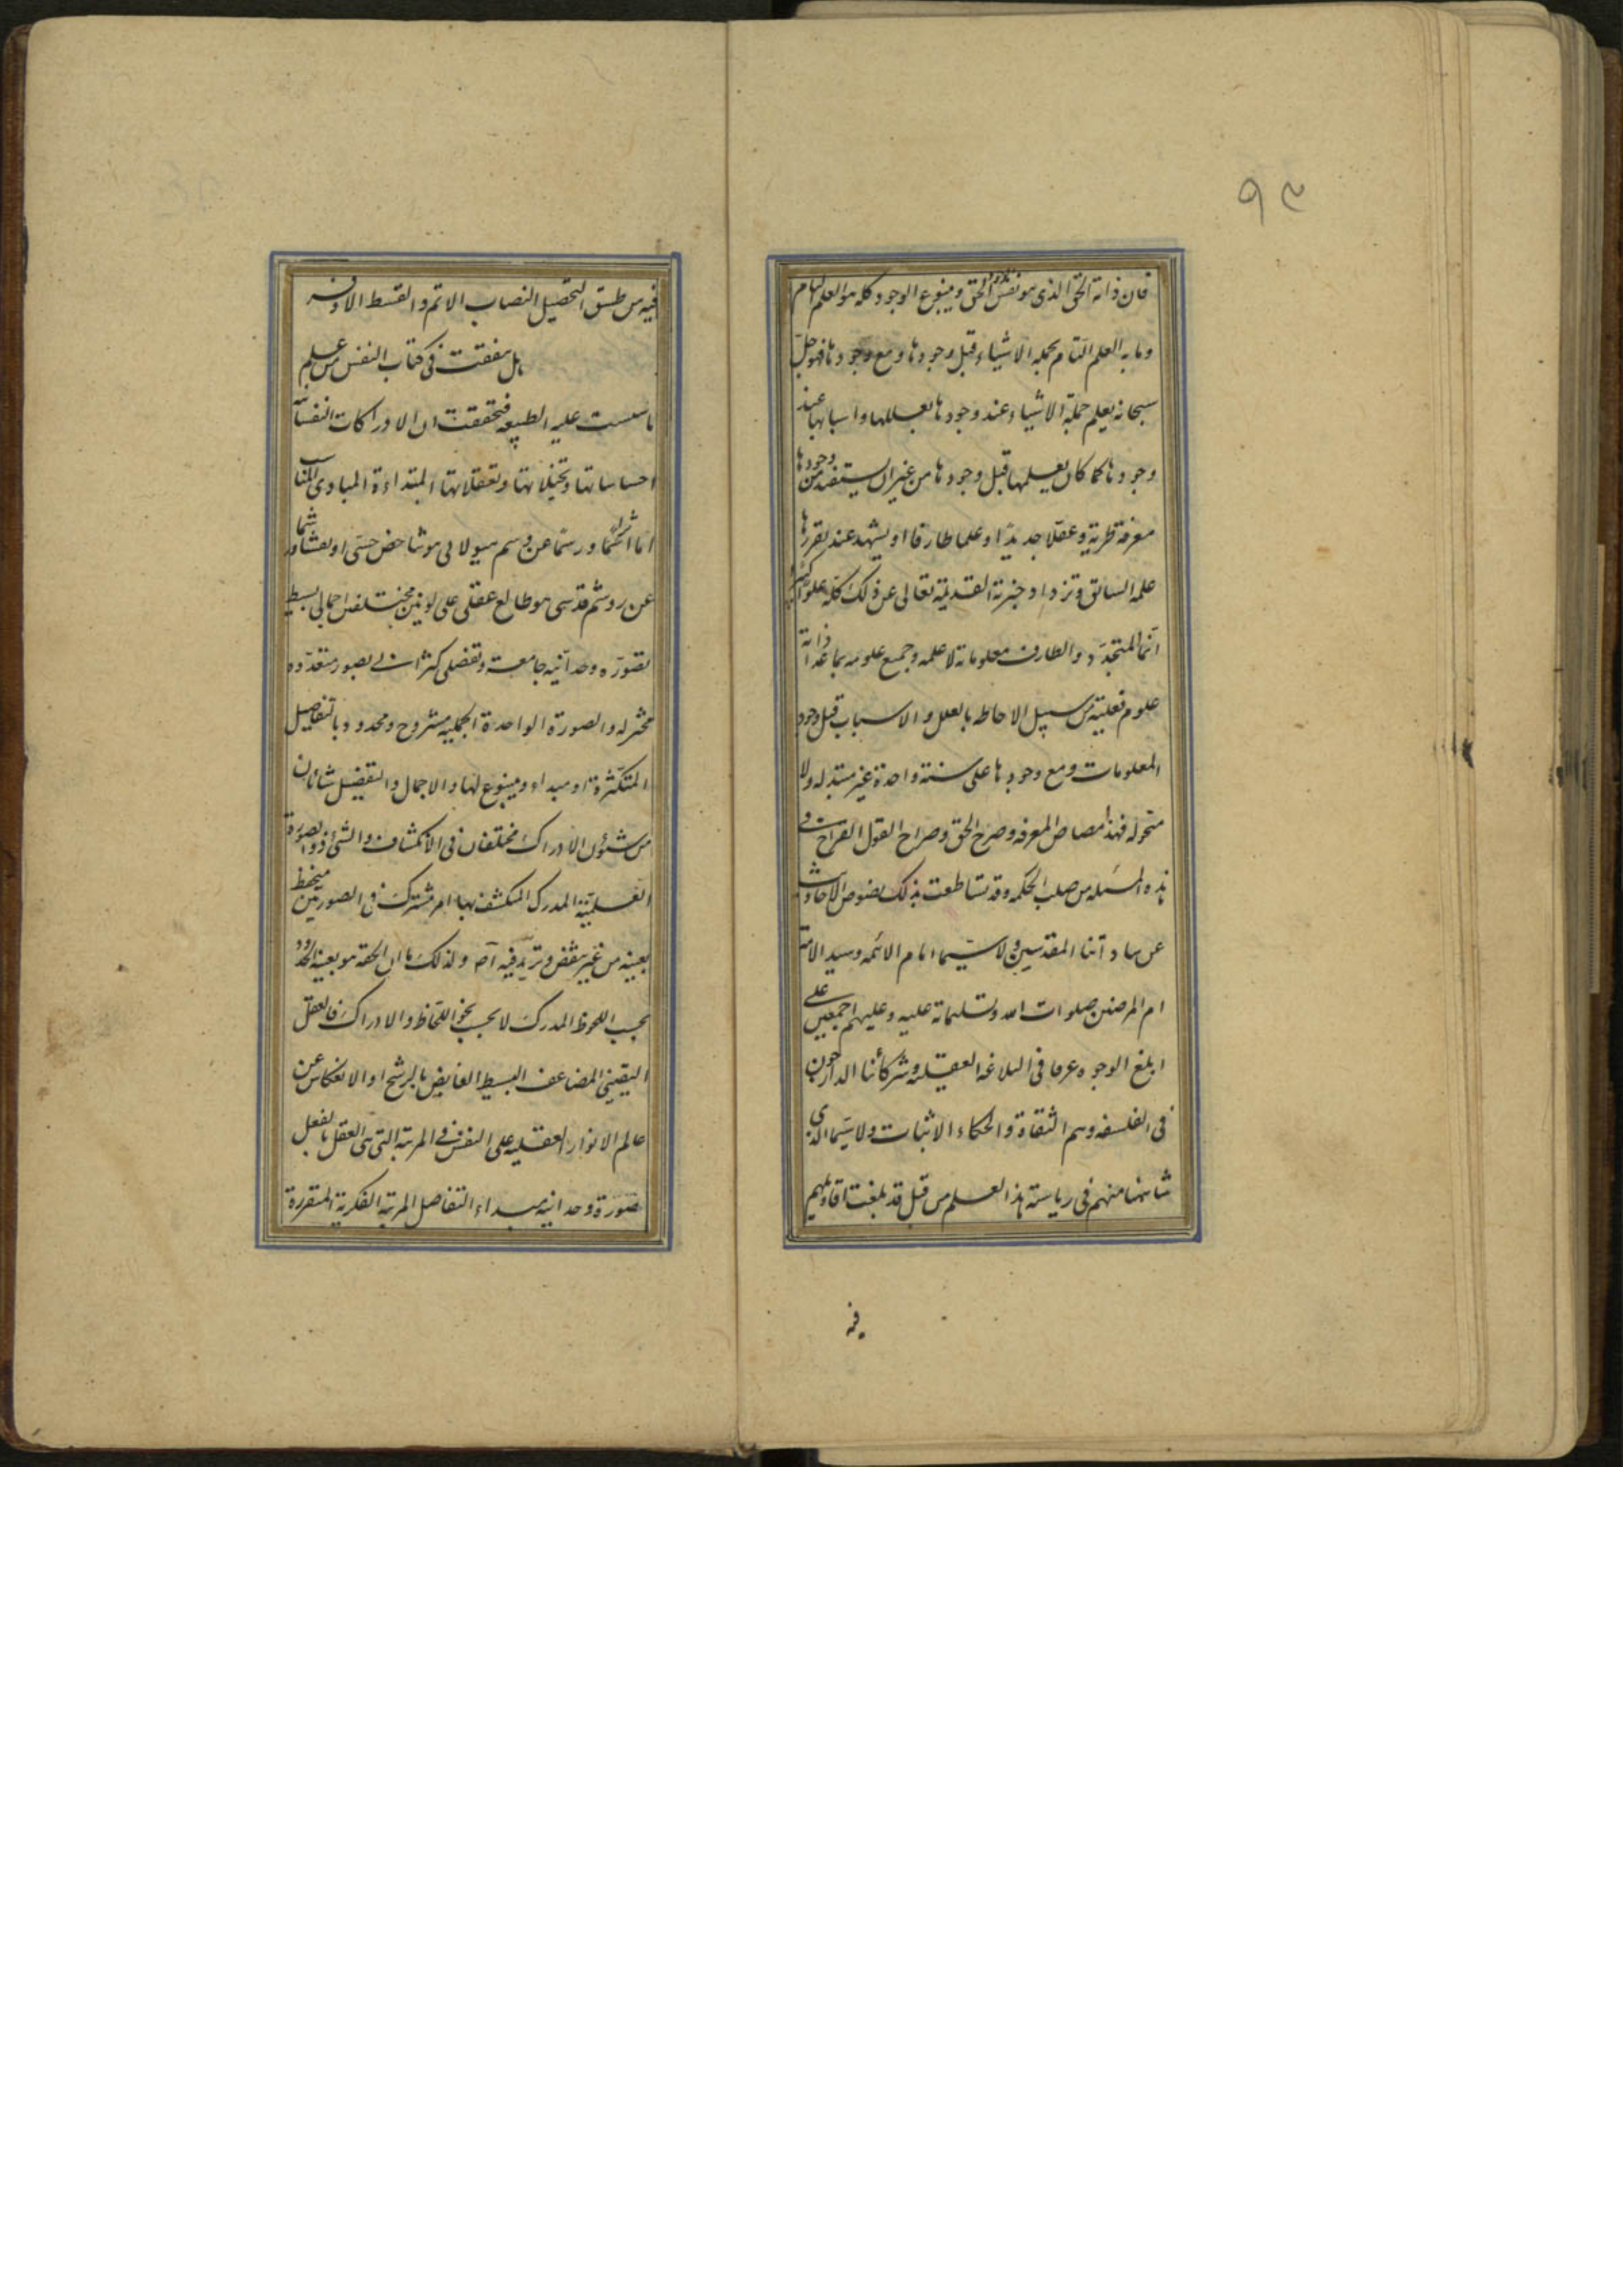 ٩٣
فان ذاته الحق الذی هو نفس الوجود الحق وینبوع الوجود کله هو العلم التام
وما به العلم التام بجملة الاشیاء قبل وجودها ومع وجودها فهو جل
سبحانه یعلم جملة الاشیاء عند وجودها بعللها واسبابها عند
وجودها کما کان یعلمها قبل وجودها من غیر ان یستفید من وجودها
معرفة طریة وعقلا جدیدا وعلما طارفا او یشهد عند تقررها
علمه السابق وتزداد خبرته القدیمة تعالی عن ذلک کله علوا کبیرا
انما المتجدد والطارف معلوماته لا علمه وجمیع علومه بما عدا ذاته
علوم فعلیة من سبیل الاحاطه بالعلل والاسباب قبل وجود
المعلومات ومع وجودها علی سنة واحدة غیر متبدله ولا
متحوله فهذا مصاص المعرفه وصرح الحق وصراح القول القراح فی
هذه المسئله من صلب الحکمه وقد تساطعت بذلک نصوص الاحادیث
عن ساداتنا المقدسین ولا سیما امام الائمه وسید الامة
صلوات الله وتسلیماته علیه وعلیهم اجمعین علی
ابلغ الوجوه عرفا فی البلاغة العقلیه وشرکائنا الدارجون
فی الفلسفه وهم الثقاة والحکماء الاثبات ولا سیما الذی
شاهنا منهم فی ریاسة هذا العلم من قبل قد بلغت اقاویلهم
فیه
فیه من طسق التحصیل النصاب الاتم والقسط الاوفر
هل تفقهت فی کتاب النفس من علم
ما سست علیه الطبیعه فتحققت ان الادراکات النفسانیة
احساساتها وتخیلاتها وتعقلاتها المبتداءة المبادی
عن روشم قدسی هو طالع عقلی علی لونین مختلفین اجمالی بسیط
بصوره وحدانیه جامعة وتفصلی بصور متعدده
والصورة الواحدة الجملیه مشروح ومحدود بالتفاصیل
المتکثرة او مبداء وینبوع لها والاجمال والتفصیل شانان
من شئون الادراک مختلفان فی الانکشاف والشئ ذو الصورة
العلمیة المدرک المنکشف بها امر مشترک فی الصورتین منحفظ
بعینه من غیر نقص وتزید فیه آصه ولذلک ما ان الحقه هو بعینه المحدود
بحسب الملحوظ المدرک لا بحسب نحو اللحاظ والادراک فالعقل
الیقینی المضاعف البسیط الفایض بالرشح او الانعکاس عن
عالم الانوار العقلیه علی النفس فی المرتبة التی هی العقل بالفعل
صورة وحدانیه مبداء التفاصیل المرتبة الفکریة المتقررة